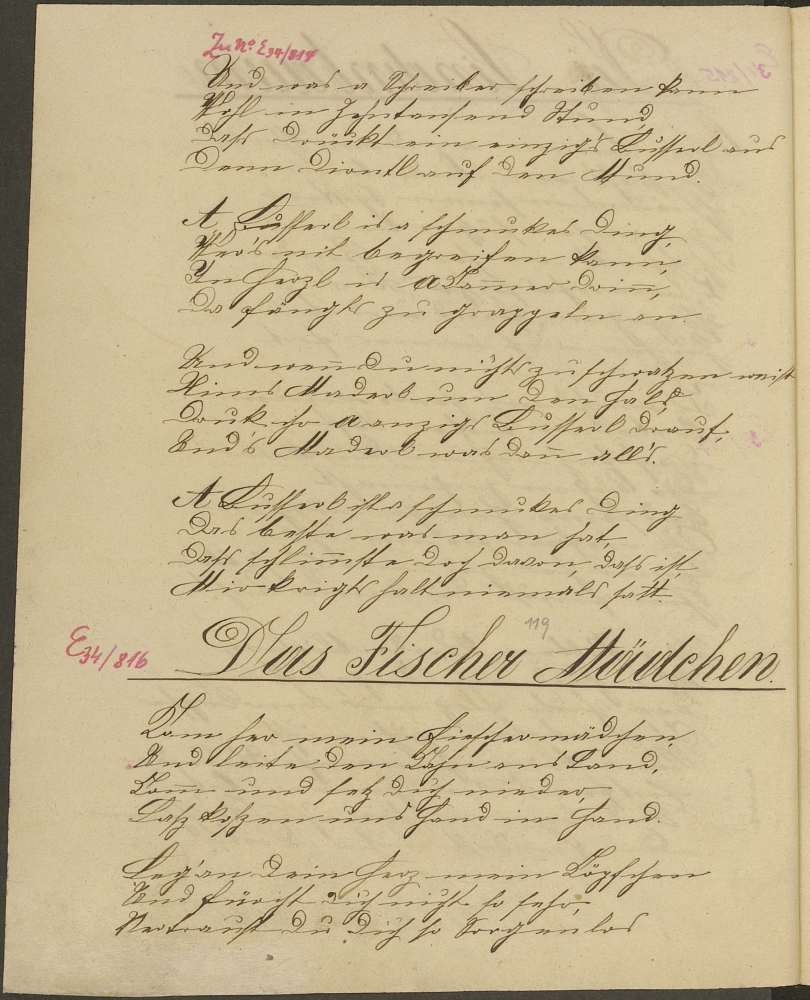 Zu No E34/815
Und was a Schreiber schreiben kann
Wohl in Zehntausend Stund,
Dass drückt ein einzig's Busserl aus
Denn Dirntl auf den Mund.
A Busserl is a schmukes Ding,
Wer's nit begreifen kann,
In Herzl is a Kammer drinn,
Da fängts zu grappeln an.
Und wenn Du nichts zu schwatzen weist
Nimms Maderl um den Hals,
Druk ihr a anzigs Busserl drauf,
Und's Maderl was dann all's.
A Busserl ist a schmukes Ding
Das beste was man hat,
Dass schlimmste doch davon, dass ist,
Mir krigts halt niemals satt.
119
E34/816
Das Fischer Mädchen.
Kom her mein Fischermädchen,
Und leite den Kahn ans Land,
Komm und setz dich nieder,
Lasz koszen uns Hand in Hand.
Leg' an Dein Herz mein Köpfchen
Und fürcht dich nicht so sehr,
Vertraust Du Dich so Sorgenlos